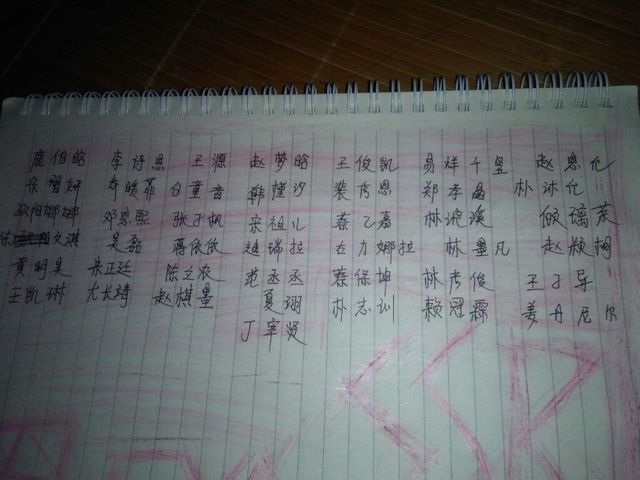 庞伯晗 李诗恩 王源 赵梦晗 王俊凯 易烊千玺 赵恩化
宋智妍 乔晙菲 白童音 韩憧汐 裴秀恩 郑李晶 朴沐化
欧阳娜娜 邓恩熙 张子枫 宋祖儿 蔡乙嘉 林淀溪
文淇 吴磊 蒋依依 迪瑞拉 古力娜拉 林墨凡 赵颖博
黄明昊 朱正廷 陈立农 范丞丞 蔡保坤 林彦俊 王子异
王凯琳 尤长靖 赵棋墨 夏翊 朴志训 赖冠霖 姜丹尼尔
丁宰贤